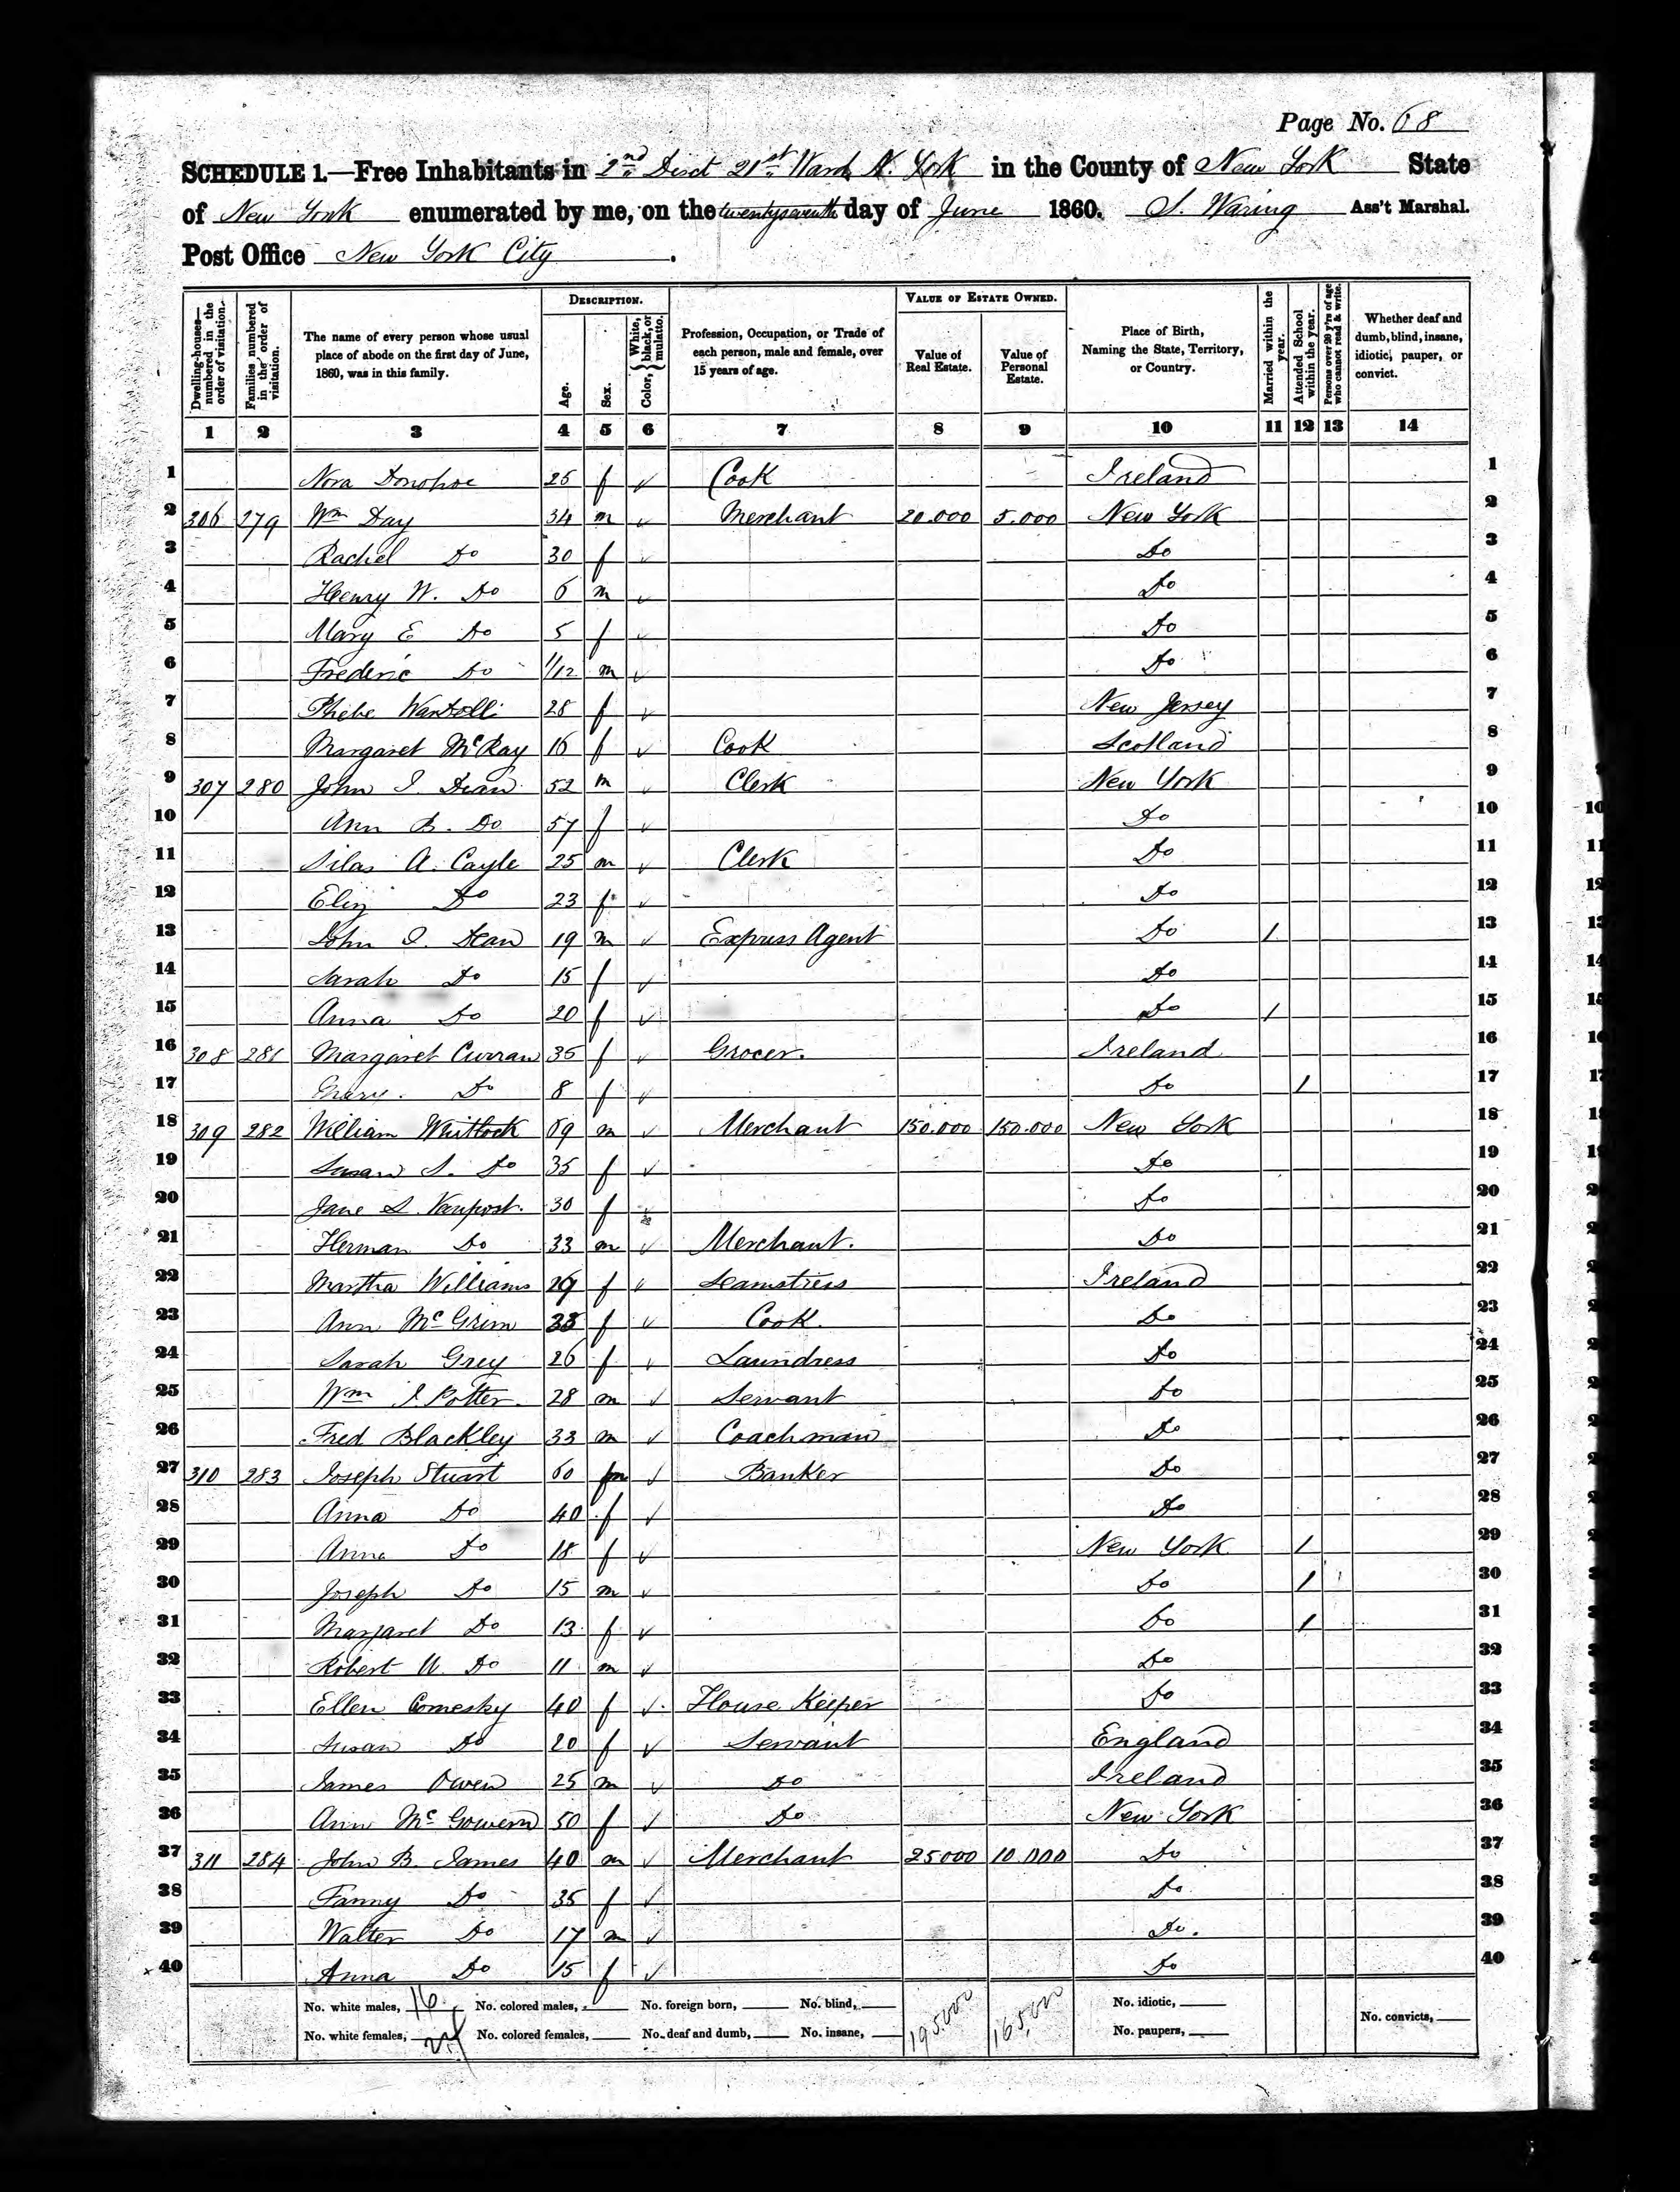 Page No. 68
SCHEDULE 1.—Free Inhabitants in 2nd Dist 21st Ward N. York in the County of New York State
of New York enumerated by me, on the twentyseventh day of June 1860. S. Waring Ass't Marshal.
Post Office New York City.
Dwelling-houses—numbered in the order of visitation.
Families numbered in the order of visitation.
The name of every person whose usual place of abode on the first day of June, 1860, was in this family.
DESCRIPTION.
Age.
Sex.
Color, { White, black, or mulatto.
Profession, Occupation, or Trade of each person, male and female, over 15 years of age.
VALUE OF ESTATE OWNED.
Value of Real Estate.
Value of Personal Estate.
Place of Birth, Naming the State, Territory, or Country.
Married within the year.
Attended School within the year.
Persons over 20 y'rs of age who cannot read & write.
Whether deaf and dumb, blind, insane, idiotic, pauper, or convict.
1 2 3 4 5 6 7 8 9 10 11 12 13 14
1 Nora Donohoe 25 f ✓ Cook Ireland 1
2 306 279 Wm Day 34 m ✓ Merchant 20.000 5.000 New York 2
3 Rachel Do 30 f ✓ Do 3
4 Henry W. Do 6 m ✓ Do 4
5 Mary E Do 5 f ✓ Do 5
6 Frederic Do 1/12 m ✓ Do 6
7 Phebe 28 f ✓ New Jersey 7
8 Margaret McKay 16 f ✓ Cook Scotland 8
9 307 280 John I. Dean 52 m ✓ Clerk New York 9
10 Ann B. Do 57 f ✓ Do 10
11 Silas A. Cayle 25 m ✓ Clerk Do 11
12 Eliz Do 23 f ✓ Do 12
13 John I. Dean 19 m ✓ Express Agent Do 1 13
14 Sarah Do 15 f ✓ Do 14
15 Anna Do 20 f ✓ Do 1 15
16 308 281 Margaret Curran 35 f ✓ Grocer. Ireland 16
17 Mary. Do 8 f ✓ Do 1 17
18 309 282 William Whitlock 69 m ✓ Merchant 150.000 150.000 New York 18
19 Susan S. Do 35 f ✓ Do 19
20 Jane L. Vanpost. 30 f ✓ Do 20
21 Herman Do 33 m ✓ Merchant. Do 21
22 Martha Williams 29 f ✓ Seamstress Ireland 22
23 Ann McGrim 35 f ✓ Cook. Do 23
24 Sarah Grey 26 f ✓ Laundress Do 24
25 Wm J. Potter. 28 m ✓ Servant Do 25
26 Fred Blackley 33 m ✓ Coachman Do 26
27 310 283 Joseph Stuart 60 m ✓ Banker Do 27
28 Anna Do 40 f ✓ Do 28
29 Anna Do 18 f ✓ New York 1 29
30 Joseph Do 15 m ✓ Do 1 30
31 Margaret Do 13 f ✓ Do 1 31
32 Robert W. Do 11 m ✓ Do 32
33 Ellen Comesky 40 f ✓ House Keeper Do 33
34 Susan Do 20 f ✓ Servant England 34
35 James Owen 25 m ✓ Do Ireland 35
36 Ann McGowern 50 f ✓ Do New York 36
37 311 284 John B. James 40 m ✓ Merchant 25000 10.000 Do 37
38 Fanny Do 35 f ✓ Do 38
39 Walter Do 17 m ✓ Do. 39
40 Anna Do 15 f ✓ Do 40
No. white males, 16 No. colored males, No. foreign born, No. blind, 195000 165,000 No. idiotic,
No. white females, 24 No. colored females, No. deaf and dumb, No. insane, No. paupers, No. convicts,